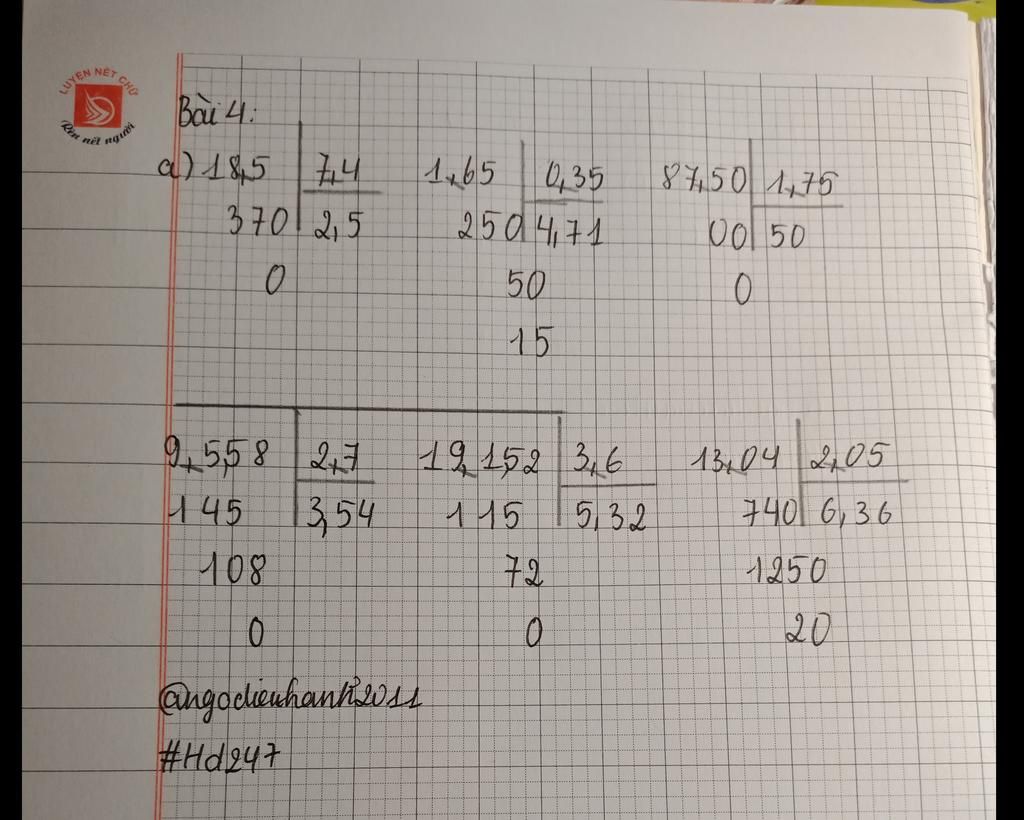 LUYỆN NÉT CHỮ
Rèn nết người
Bài 4:
a) 18,5 7,4 1,65 0,35 87,50 1,75
370 2,5 250 4,71 00 50
0 50 0
15
9,558 2,7 19,152 3,6 13,04 2,05
145 3,54 115 5,32 740 6,36
108 72 1250
0 0 20
@ngodieuhanh2011
#Hd247